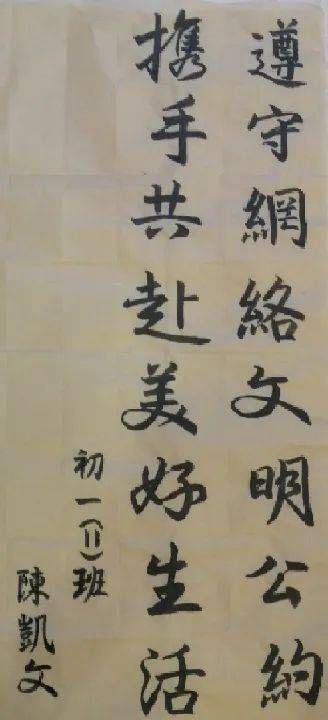 遵守網絡文明公約
携手共赴美好生活
初一(二)班
陳凱文